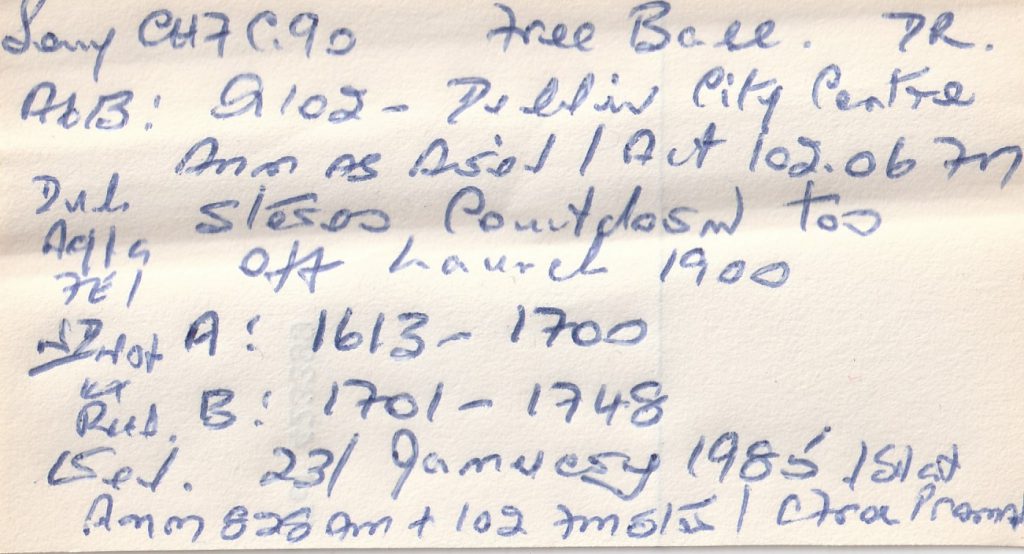 Sony CH7 C.90 Free Ball. DR.
A+B: Q102 - Dublin City Centre
Ann as Asiel / Act 102.06 FM
Dub. Stereo Countdown Too
Aq/a Off Launch 1900
FE1
Not A: 1613 - 1700
Rud. B: 1701 - 1748
23/ January 1985
Ann 828 am + 102 FM